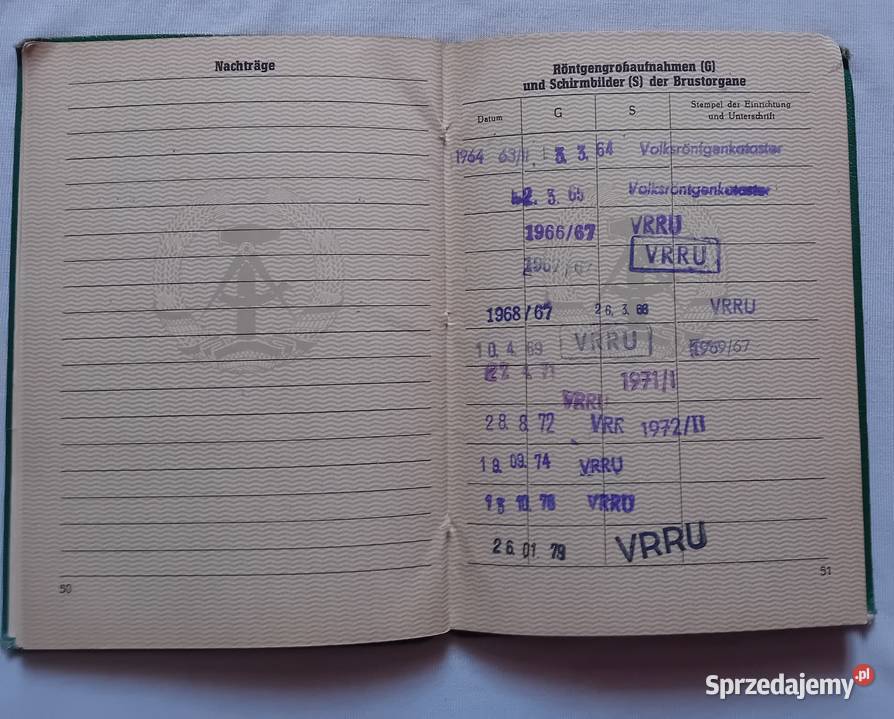 Nachträge
50
Röntgengroßaufnahmen (G)
und Schirmbilder (S) der Brustorgane
Datum G S Stempel der Einrichtung und Unterschrift
1964 63/II 3. 64 Volksröntgenkataster
3. 65 Volksröntgenkataster
1966/67 VRRU
VRRU
1968/67 26. 3. 68 VRRU
10. 4. 69 VRRU 1969/67
71 1971/I
VRRU
28. 8. 72 VRR 1972/II
09. 74 VRRU
10. 76 VRRU
26. 01. 79 VRRU
51
Sprzedajemy.pl